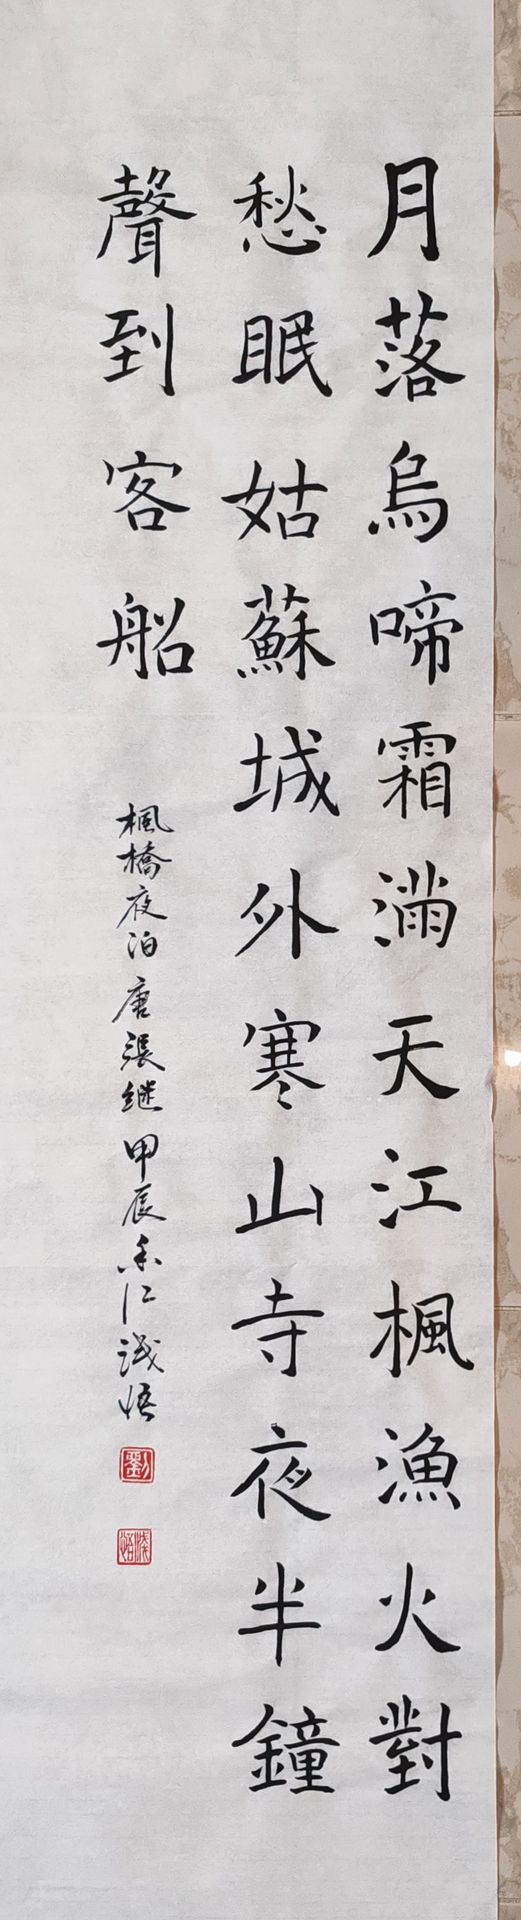 月落烏啼霜滿天江楓漁火對
愁眠姑蘇城外寒山寺夜半鐘
聲到客船
楓橋夜泊唐張継甲辰禾仁淺悟
劉
淺悟